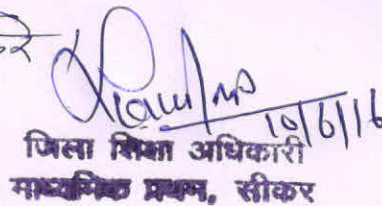 10/6/16
जिला शिक्षा अधिकारी
माध्यमिक प्रथम, सीकर